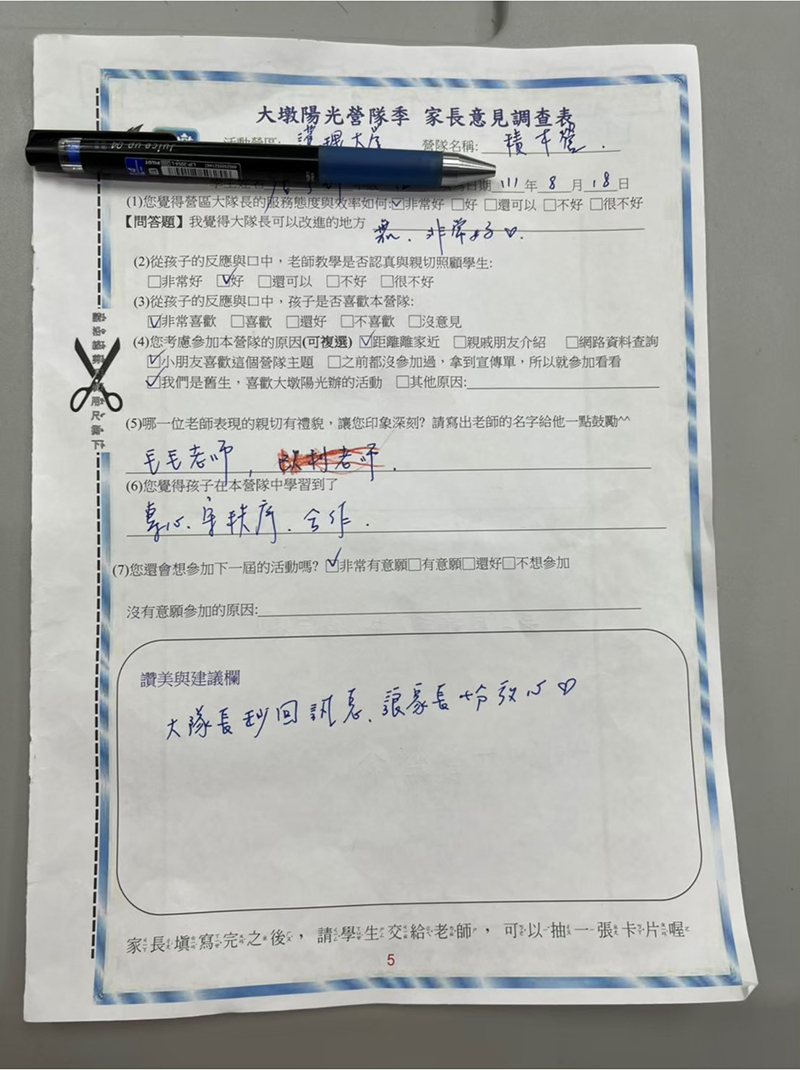 大墩陽光營隊季 家長意見調查表
活動營區: 護理大學 營隊名稱: 積木營.
日期 111 年 8 月 18 日
(1)您覺得營區大隊長的服務態度與效率如何:☑非常好 □好 □還可以 □不好 □很不好
【問答題】我覺得大隊長可以改進的地方 無、非常好♡.
(2)從孩子的反應與口中,老師教學是否認真與親切照顧學生:
□非常好 ☑好 □還可以 □不好 □很不好
(3)從孩子的反應與口中,孩子是否喜歡本營隊:
☑非常喜歡 □喜歡 □還好 □不喜歡 □沒意見
(4)您考慮參加本營隊的原因(可複選) ☑距離離家近 □親戚朋友介紹 □網路資料查詢
☑小朋友喜歡這個營隊主題 □之前都沒參加過,拿到宣傳單,所以就參加看看
☑我們是舊生,喜歡大墩陽光辦的活動 □其他原因:
(5)哪一位老師表現的親切有禮貌,讓您印象深刻? 請寫出老師的名字給他一點鼓勵^^
毛毛老師, 老師.
(6)您覺得孩子在本營隊中學習到了
專心、守秩序、合作.
(7)您還會想參加下一屆的活動嗎? ☑非常有意願□有意願□還好□不想參加
沒有意願參加的原因:
讚美與建議欄
大隊長秒回訊息、讓家長十分放心♡
家長填寫完之後,請學生交給老師,可以抽一張卡片喔
5
Juice up 04